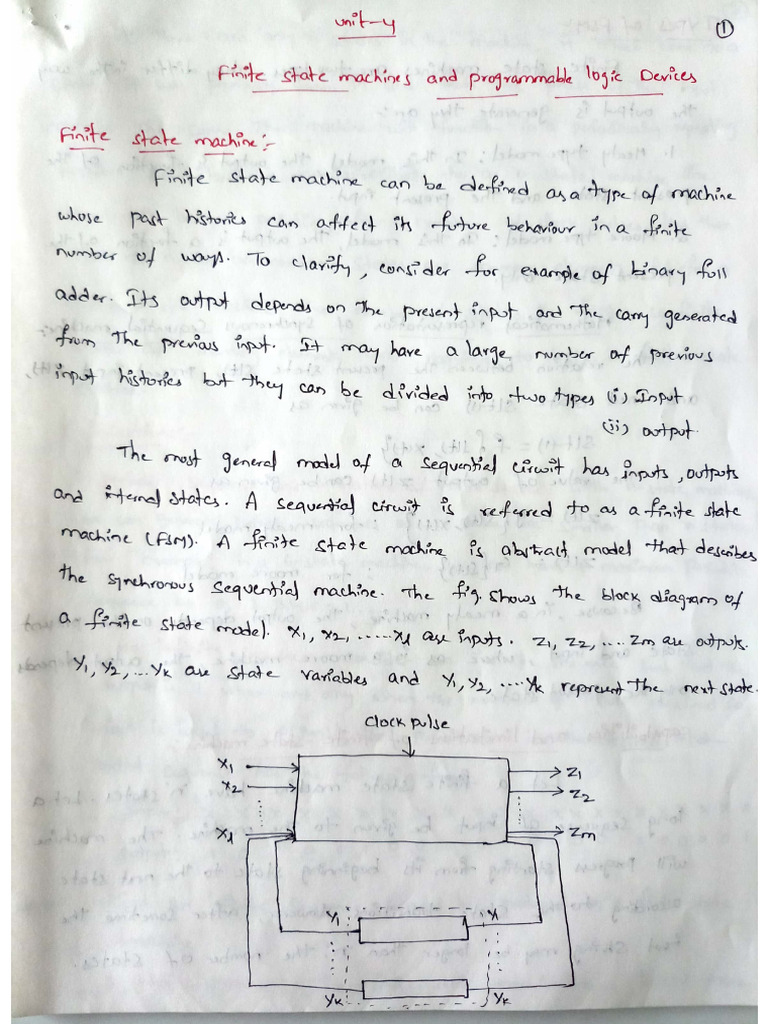 unit-4
①
Finite state machines and programmable logic Devices
Finite state machine:-
Finite state machine can be defined as a type of machine
whose past histories can affect its future behaviour in a finite
number of ways. To clarify, consider for example of binary full
adder. Its output depends on the present input and the carry generated
from the previous input. It may have a large number of previous
input histories but they can be divided into two types (i) Input
(ii) output.
The most general model of a sequential circuit has inputs, outputs
and internal states. A sequential circuit is referred to as a finite state
machine (FSM). A finite state machine is abstract model that describes
the synchronous sequential machine. The fig. shows the block diagram of
a finite state model. X1, X2, ......Xl are inputs. Z1, Z2, .... Zm are outputs.
Y1, Y2, ... Yk are state variables and Y1, Y2, .... Yk represent the next state.
clock pulse
X1 Z1
X2 Z2
Xl Zm
Y1 Y1
Yk Yk